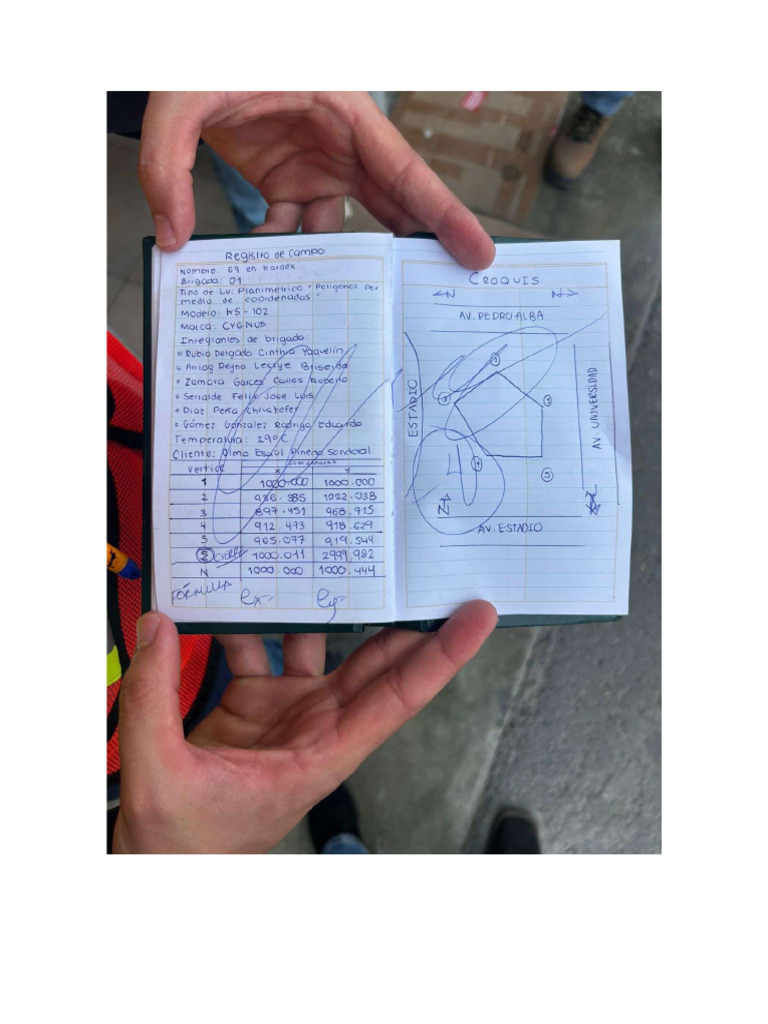 Registro de Campo
Nombre: 69 en Kardex
Brigada: 01
Tipo de Lv: Planimétrico "Poligonal por
medio de coordenadas"
Modelo: KS-102
Marca: CYGNUS
Integrantes de brigada
Rubio Delgado Cinthia Yaqvelin
Reyna Leslye Briseida
Zamora Garces Carlos Roberto
Felix Jose Luis
Diaz Peña Christofer
Gómez Gonzalez Rodrigo Eduardo
Temperatura: 29°C
Cliente: Olmo Esaul Pineda Sandoval
Vertice Coordenadas
x y
1 1000.000 1000.000
2 986.385 1022.038
3 897.451 968.715
4 912.473 918.629
5 965.077 919.544
cierre 1000.011 2999.982
N 1000.000 1000.444
FÓRMULA ex= ey=
CROQUIS
N N
AV. PEDRO ALBA
ESTADIO
AV UNIVERSIDAD
1
2
3
4
5
N
AV. ESTADIO